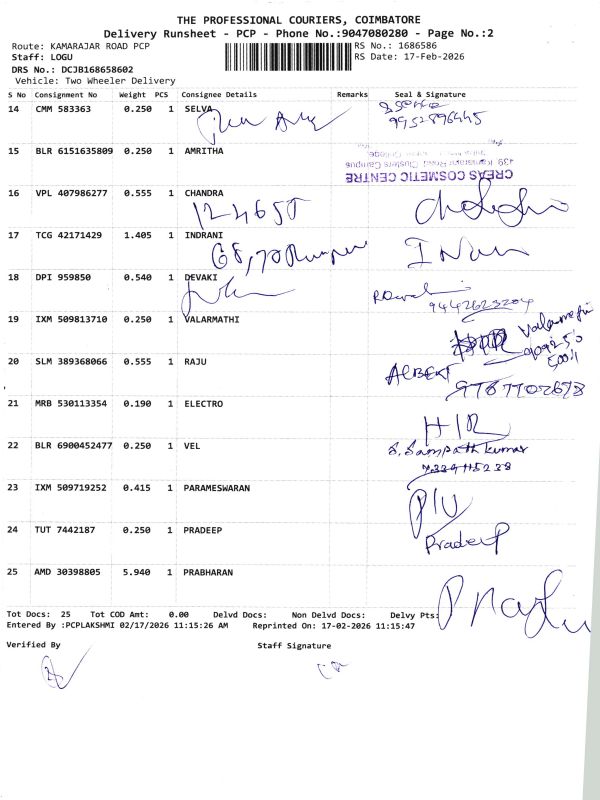 THE PROFESSIONAL COURIERS, COIMBATORE
Delivery Runsheet - PCP - Phone No.:9047080280 - Page No.:2
Route: KAMARAJAR ROAD PCP
RS No.: 1686586
Staff: LOGU
RS Date: 17-Feb-2026
DRS No.: DCJB168658602
Vehicle: Two Wheeler Delivery
S No Consignment No Weight PCS Consignee Details Remarks Seal & Signature
14 CMM 583363 0.250 1 SELVA
9952896445
15 BLR 6151635809 0.250 1 AMRITHA
CREAS COSMETIC CENTRE
439, Kamaraj Road, Clusters Campus
16 VPL 407986277 0.555 1 CHANDRA
124657
17 TCG 42171429 1.405 1 INDRANI
18 DPI 959850 0.540 1 DEVAKI
9442623204
19 IXM 509813710 0.250 1 VALARMATHI
Valarmathi
20 SLM 389368066 0.555 1 RAJU
ALBERT
9787702678
21 MRB 530113354 0.190 1 ELECTRO
22 BLR 6900452477 0.250 1 VEL
S. Sampath kumar
23 IXM 509719252 0.415 1 PARAMESWARAN
24 TUT 7442187 0.250 1 PRADEEP
Pradeep
25 AMD 30398805 5.940 1 PRABHARAN
Tot Docs: 25 Tot COD Amt: 0.00 Delvd Docs: Non Delvd Docs: Delvy Pts:
Entered By :PCPLAKSHMI 02/17/2026 11:15:26 AM Reprinted On: 17-02-2026 11:15:47
Verified By Staff Signature